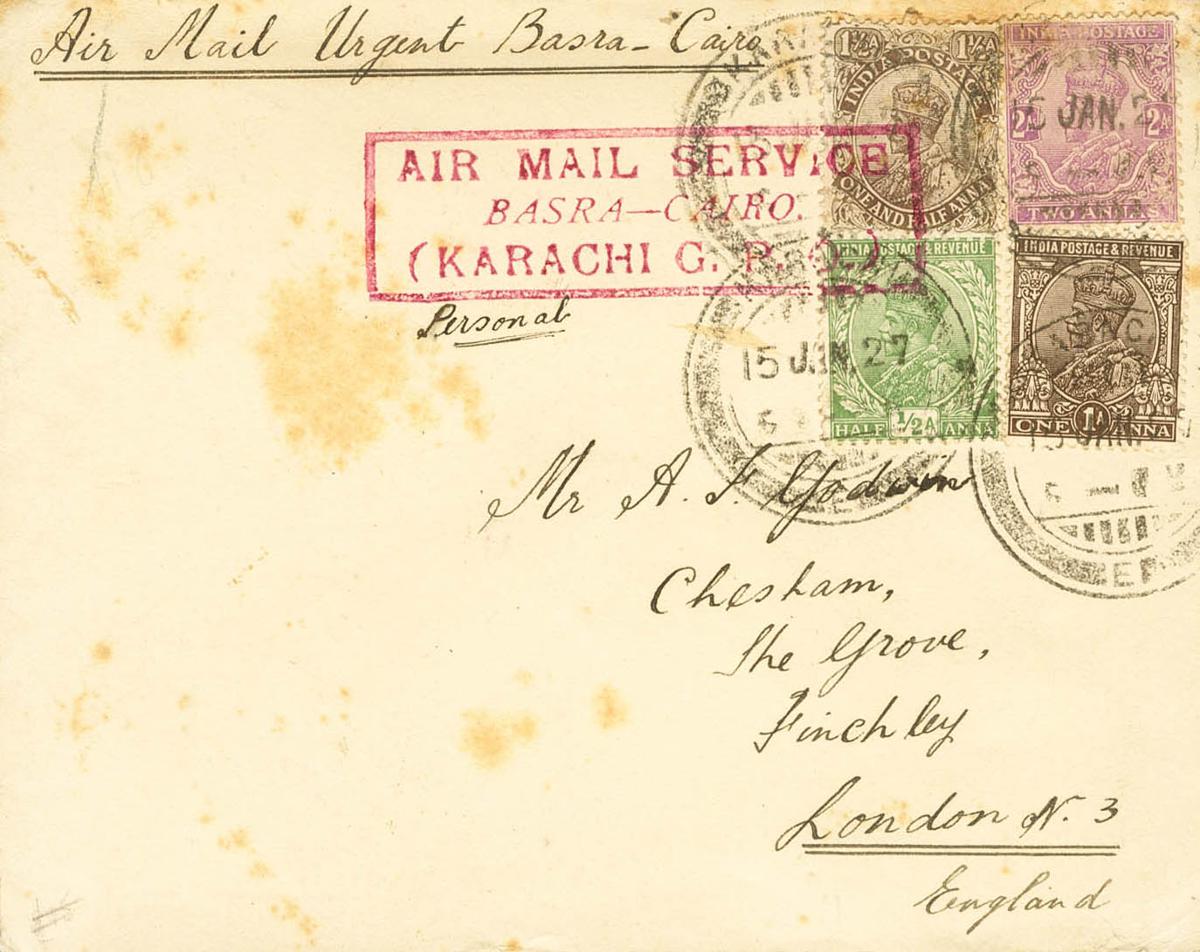 Air Mail Urgent Basra-Cairo
AIR MAIL SERVICE
BASRA—CAIRO.
(KARACHI G. P. O.)
Personal
1½A 1½A
INDIA POSTAGE
ONE AND HALF ANNA
INDIA POSTAGE
2A 2A
TWO ANNAS
15 JAN. 2
INDIA POSTAGE & REVENUE
HALF ½A ANNA
15 JAN. 27
INDIA POSTAGE & REVENUE
ONE 1A ANNA
Mr A. F. Godwin
Chesham,
The Grove,
Finchley
London N. 3
England